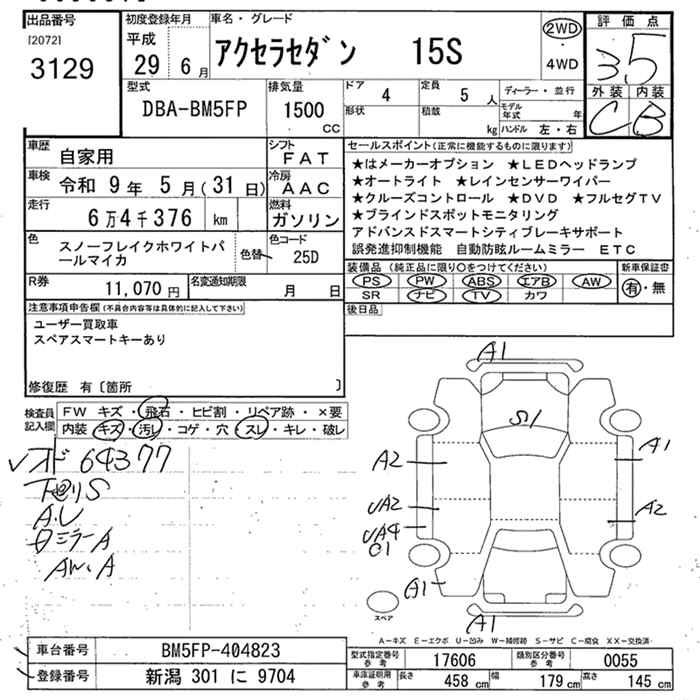 出品番号
[2072]
3129
初度登録年月
平成
29 6月
車名・グレード
アクセラセダン 15S
2WD
・
4WD
評価点
3.5
外装 内装
C B
型式
DBA-BM5FP
排気量
1500
CC
ドア
4
定員
5人
ディーラー・並行
形状
積載
kg
モデル年式 年
ハンドル 左・右
車歴
自家用
シフト
FAT
車検
令和 9年 5月(31日)
冷房
AAC
走行
6万4千376 km
燃料
ガソリン
色
スノーフレイクホワイトパールマイカ
色替
色コード
25D
R券
11,070円
名変通知期限
月 日
セールスポイント(正常に機能するものに限ります)
★はメーカーオプション ★LEDヘッドランプ
★オートライト ★レインセンサーワイパー
★クルーズコントロール ★DVD ★フルセグTV
★ブラインドスポットモニタリング
アドバンスドスマートシティブレーキサポート
誤発進抑制機能 自動防眩ルームミラー ETC
装備品(純正品に限り○をつけてください)
PS PW ABS エアB AW
SR ナビ TV カワ
新車保証書
有・無
後日品
注意事項申告欄(不具合内容等は具体的に記入して下さい)
ユーザー買取車
スペアスマートキーあり
修復歴 有〔箇所 〕
検査員記入欄
FW キズ・飛石・ヒビ割・リペア跡・×要
内装・キズ・汚レ・コゲ・穴・スレ・キレ・破レ
✓オド 64377
下回りS
A.U
ミラーA
AW.A
A1
S1
A2
A1
UA2
A2
UA4
C1
A1
A1
スペア
A-キズ E-エクボ U-凹み W-補修跡 S-サビ C-腐食 XX-交換済
車台番号
BM5FP-404823
登録番号
新潟 301 に 9704
型式指定番号
参考
17606
類別区分番号
参考
0055
車庫証明用
参考
長さ
458 cm
幅
179 cm
高さ
145 cm